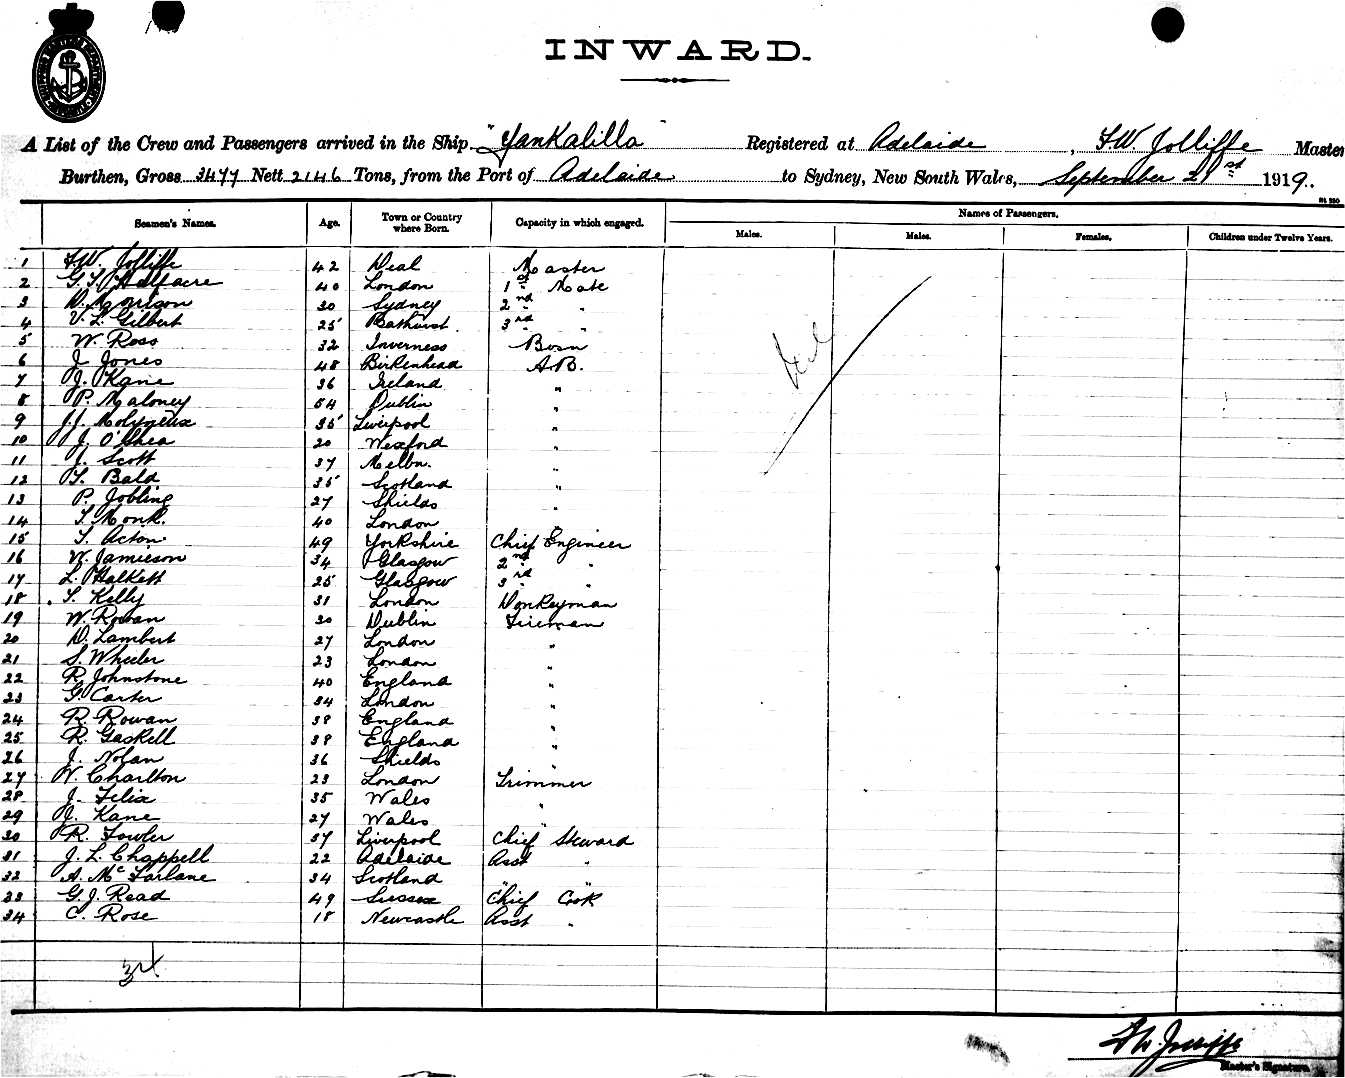 INWARD.
A List of the Crew and Passengers arrived in the Ship "Yankalilla" Registered at Adelaide, F.W. Jolliffe Master
Burthen, Gross 3477 Nett 2146 Tons, from the Port of Adelaide to Sydney, New South Wales, September 21st 1919.
Seamen's Names. Age. Town or Country where Born. Capacity in which engaged. Names of Passengers.
Males. Males. Females. Children under Twelve Years.
1 F.W. Jolliffe 42 Deal Master
2 G. T. Halfacre 40 London 1st Mate
3 D. Morison 30 Sydney 2nd "
4 V. L. Gilbert 25 Bathurst 3rd " "
5 W. Ross 32 Inverness Bosn
6 J. Jones 48 Birkenhead A.B.
7 J. Kane 36 Ireland "
8 P. Maloney 54 Dublin "
9 J.J. Molyneux 35 Liverpool "
10 J. O'Shea 20 Wexford "
11 J. Scott 37 Melbn. "
12 T. Bald 35 Scotland "
13 P. Jobling 27 Shields "
14 T. Monk. 40 London "
15 T. Acton 49 Yorkshire Chief Engineer
16 W. Jamieson 34 Glasgow 2nd "
17 L. Halkett 25 Glasgow 3rd "
18 T. Kelly 31 London Donkeyman
19 W. Rowan 30 Dublin Fireman
20 D. Lambert 27 London "
21 S. Wheeler 23 London "
22 R. Johnstone 40 England "
23 G. Carter 34 London "
24 R. Rowan 38 England "
25 R. Gaskell 38 England "
26 J. Nolan 36 Shields "
27 W. Charlton 23 London Trimmer
28 J. Felix 35 Wales "
29 J. Kane 27 Wales "
30 R. Fowler 37 Liverpool Chief Steward
31 J. L. Chappell 22 Adelaide Asst "
32 A. McFarlane 34 Scotland " "
33 G. J. Read 49 Sussex Chief Cook
34 C. Rose 18 Newcastle Asst "
34
F.W. Jolliffe
Master's Signature.